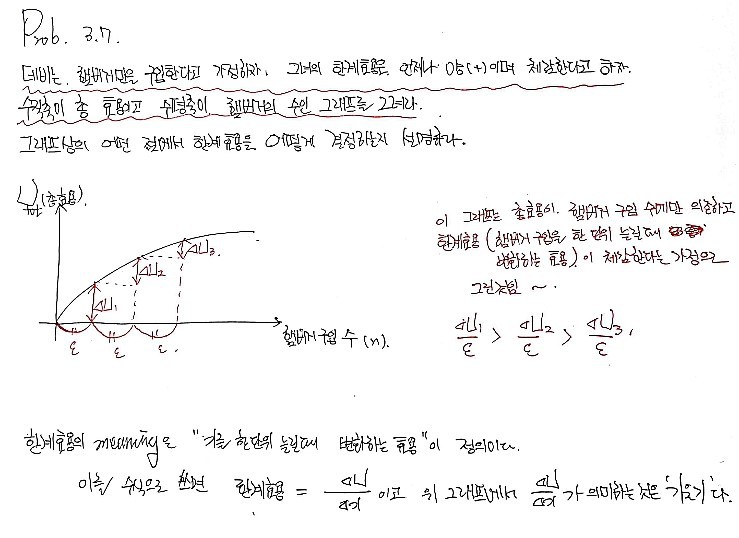 Prob. 3.7.
데비는 햄버거만을 구입한다고 가정하자. 그녀의 한계효용은 언제나 양(+)이며 체감한다고 하자.
수직축이 총 효용이고 수평축이 햄버거의 수인 그래프를 그려라.
그래프상의 어떤 점에서 한계효용을 어떻게 결정하는지 설명하라.
U tot (총효용).
ΔU₁
ΔU₂
ΔU₃.
ε ε ε.
햄버거 구입 수 (n).
이 그래프는 총효용이 햄버거 구입 수에만 의존하고
한계효용 (햄버거 구입을 한 단위 늘릴때
변화하는 효용)이 체감한다는 가정으로
그린것임 ~.
ΔU₁/ε > ΔU₂/ε > ΔU₃/ε.
한계효용의 meaning은 "재화를 한단위 늘릴때 변화하는 효용"이 정의이다.
이를 수식으로 쓰면 한계효용 = ΔU/Δx 이고 위 그래프에서 ΔU/Δx 가 의미하는 것은 '기울기'다.